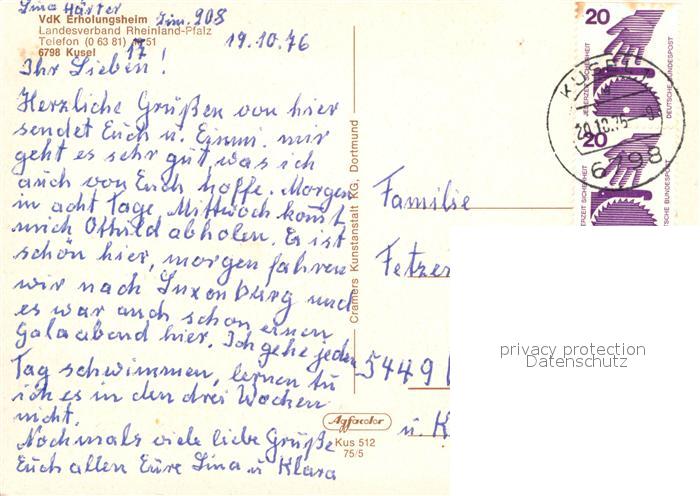 Lina Härter
VdK Erholungsheim Zim. 908
Landesverband Rheinland-Pfalz
Telefon (0 63 81) 51
6798 Kusel 17
19.10.76
Ihr Lieben!
Herzliche Grüßen von hier
sendet Euch u. mir
geht es sehr gut, was ich
auch von Euch hoffe. Morgen
in acht Tage Mittwoch komt
mich Othild abholen. Es ist
schön hier, morgen fahren
wir nach Luxenburg und
es war auch schon einen
Galaabend hier. Ich gehe jeden
Tag schwimmen, lernen tu
ich es in den drei Wochen
nicht.
Nochmals viele liebe Grüße
Euch allen Eure Lina u Klara
Cramers Kunstanstalt KG, Dortmund
Agfacolor
Kus 512
75/5
20
JEDERZEIT SICHERHEIT
DEUTSCHE BUNDESPOST
20
JEDERZEIT SICHERHEIT
DEUTSCHE BUNDESPOST
KUSEL
20.10.76
6798
Familie
Fetzer
5449
u. K
privacy protection
Datenschutz